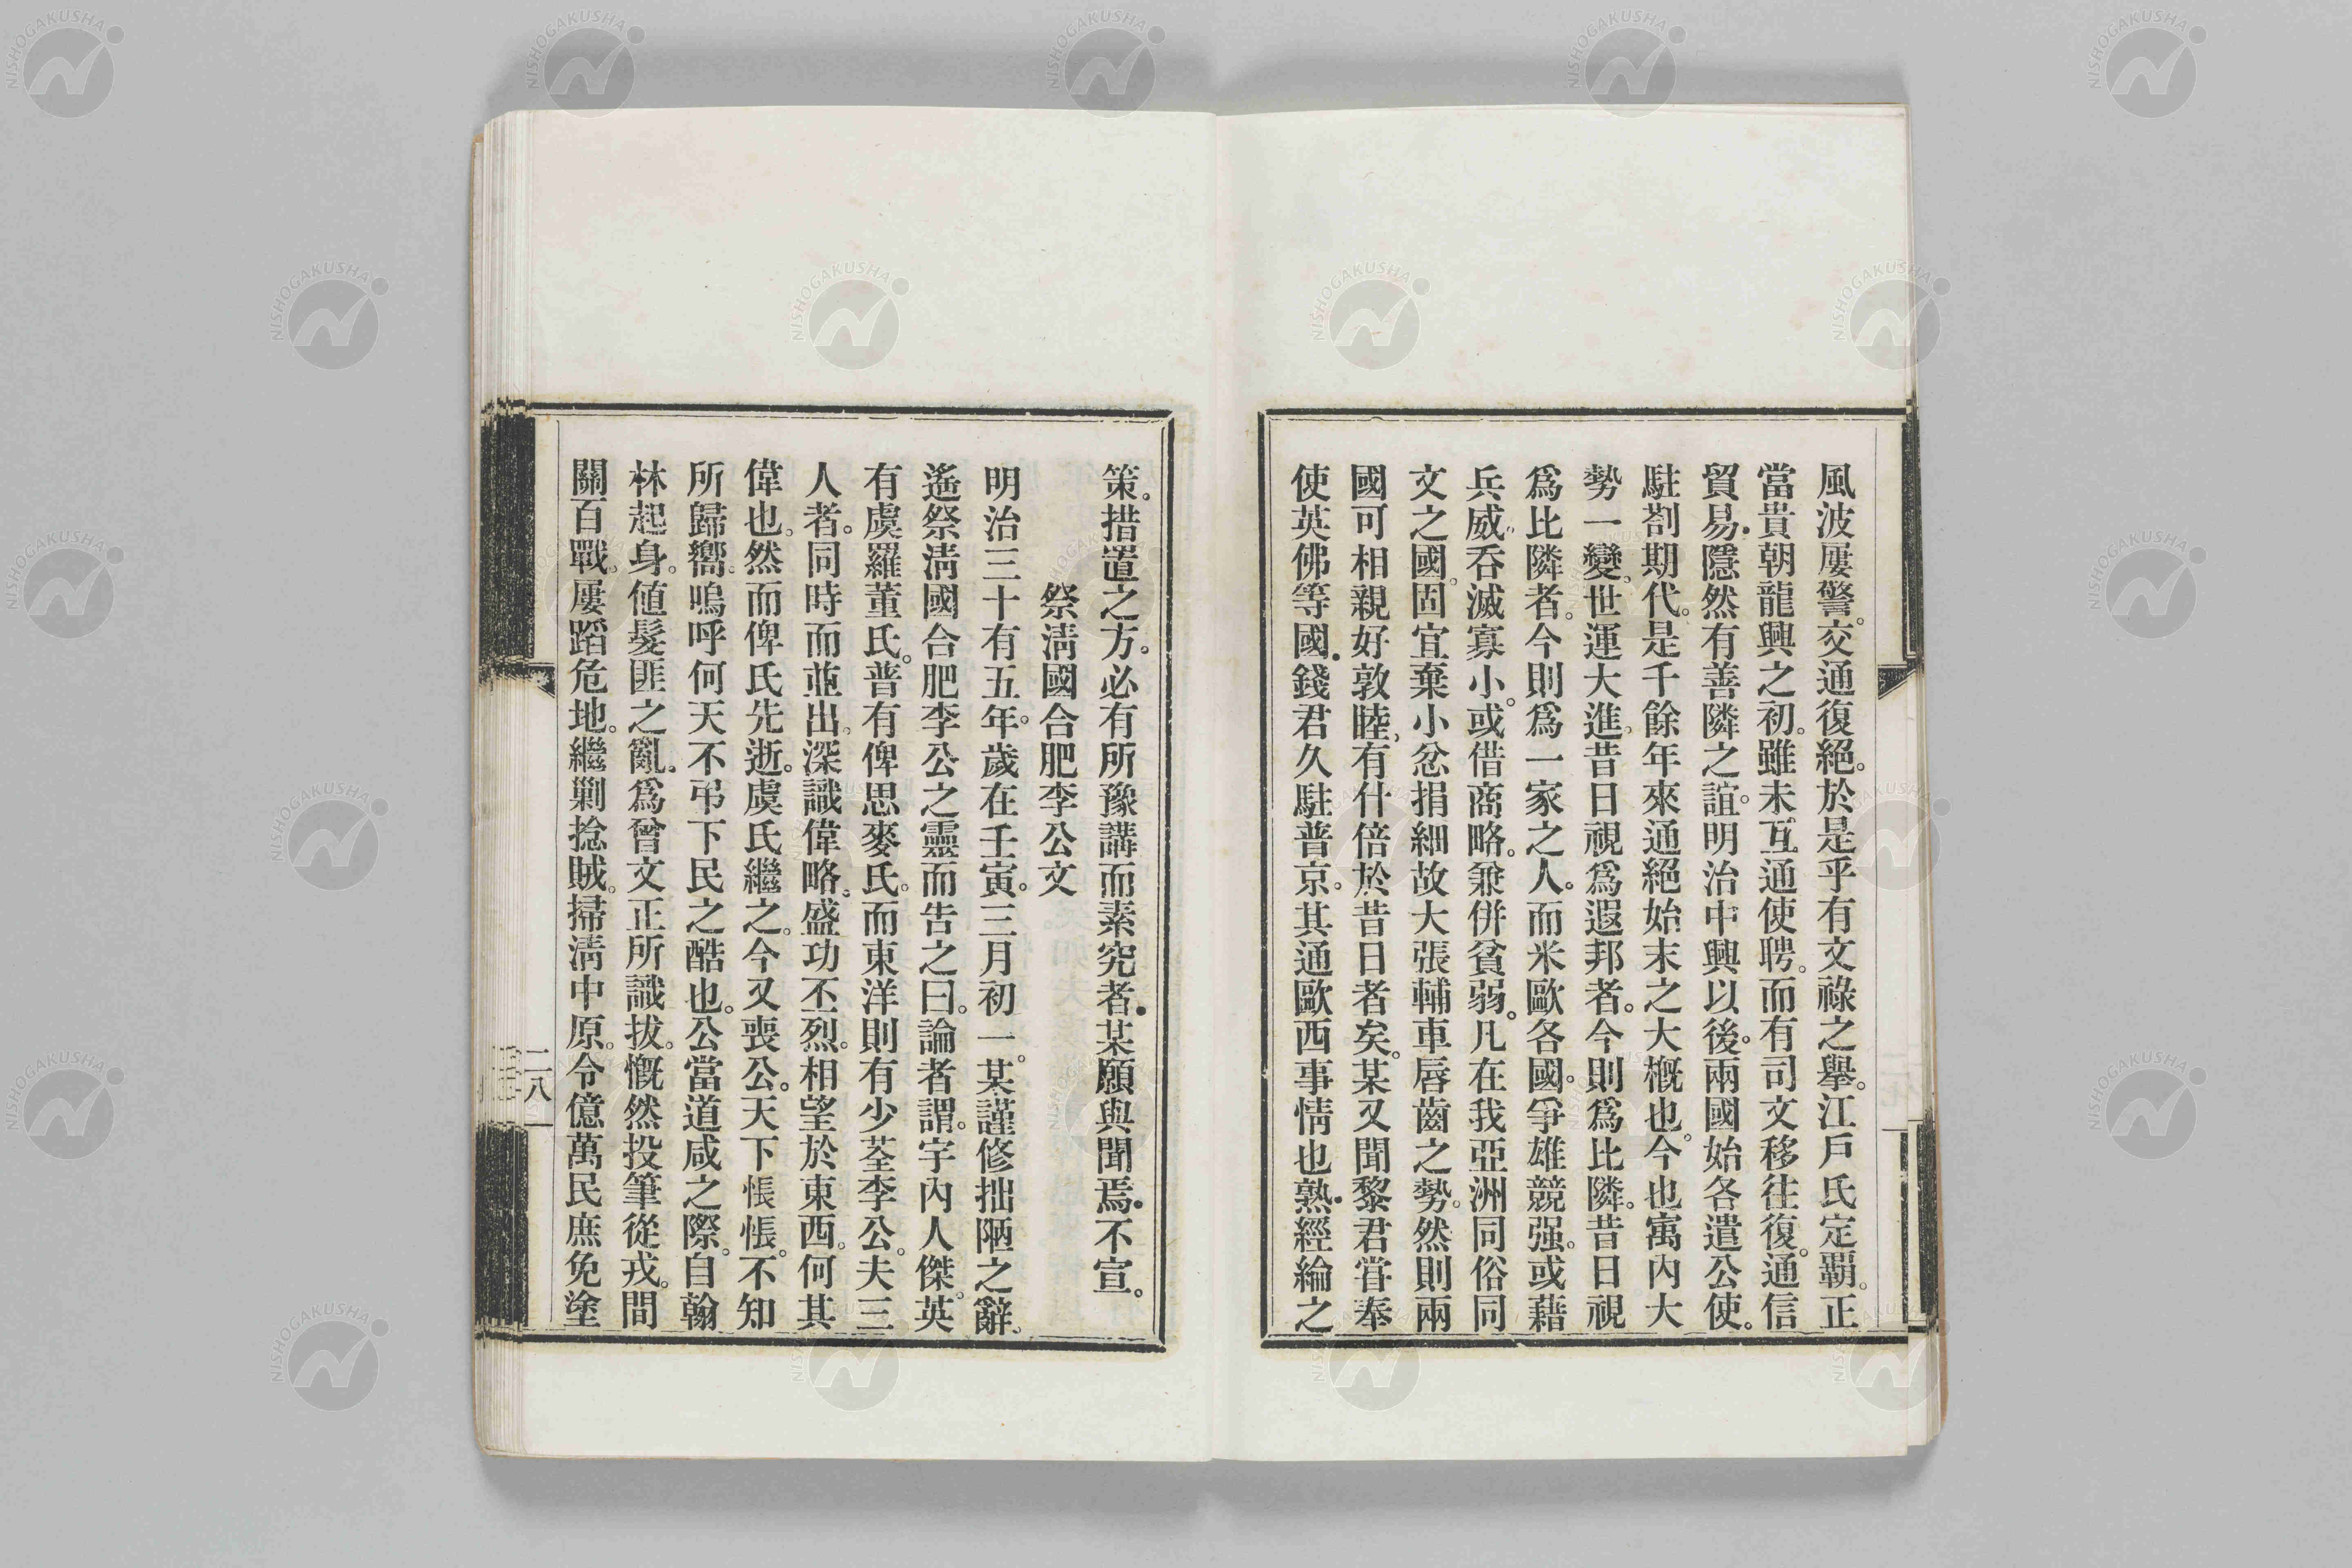 風波屢警。交通復絕。於是乎有文祿之擧。江戶氏定覇。正
當貴朝龍興之初。雖未互通使聘。而有司文移往復。通信
貿易。隱然有善隣之誼。明治中興以後。兩國始各遣公使。
駐剳期代。是千餘年來通絕始末之大槪也。今也寓內大
勢一變。世運大進。昔日視爲遐邦者。今則爲比隣。昔日視
爲比隣者。今則爲一家之人。而米歐各國。爭雄競强。或藉
兵威。吞滅寡小。或借商略。兼併貧弱。凡在我亞洲同俗同
文之國。固宜棄小忿捐細故大張輔車唇齒之勢。然則兩
國可相親好敦睦、有什倍於昔日者矣。某又聞黎君甞奉
使英佛等國。錢君久駐普京。其通歐西事情也熟。經綸之
策。措置之方。必有所豫講而素究者。某願與聞焉。不宣。
祭淸國合肥李公文
明治三十有五年。歲在壬寅。三月初一。某謹修拙陋之辭。
遙祭淸國合肥李公之靈而告之曰。論者謂。宇內人傑。英
有虞羅董氏。普有俾思麥氏。而東洋則有少荃李公。夫三
人者。同時而並出。深識偉略。盛功丕烈。相望於東西。何其
偉也。然而俾氏先逝。虞氏繼之。今又喪公。天下悵悵。不知
所歸嚮。嗚呼何天不弔下民之酷也。公當道咸之際。自翰
林起身。値髮匪之亂。爲曾文正所識拔。慨然投筆從戎。間
關百戰。屢蹈危地。繼剿捻賊。掃淸中原。令億萬民庶免塗
二八